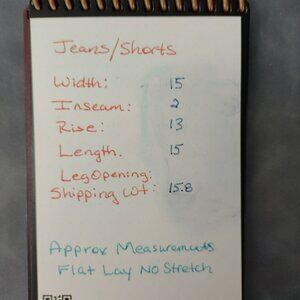 Jeans/Shorts
Width: 15
Inseam: 2
Rise: 13
Length. 15
Leg Opening:
Shipping Wt: 15.8
Approx Measurements
Flat Lay No Stretch